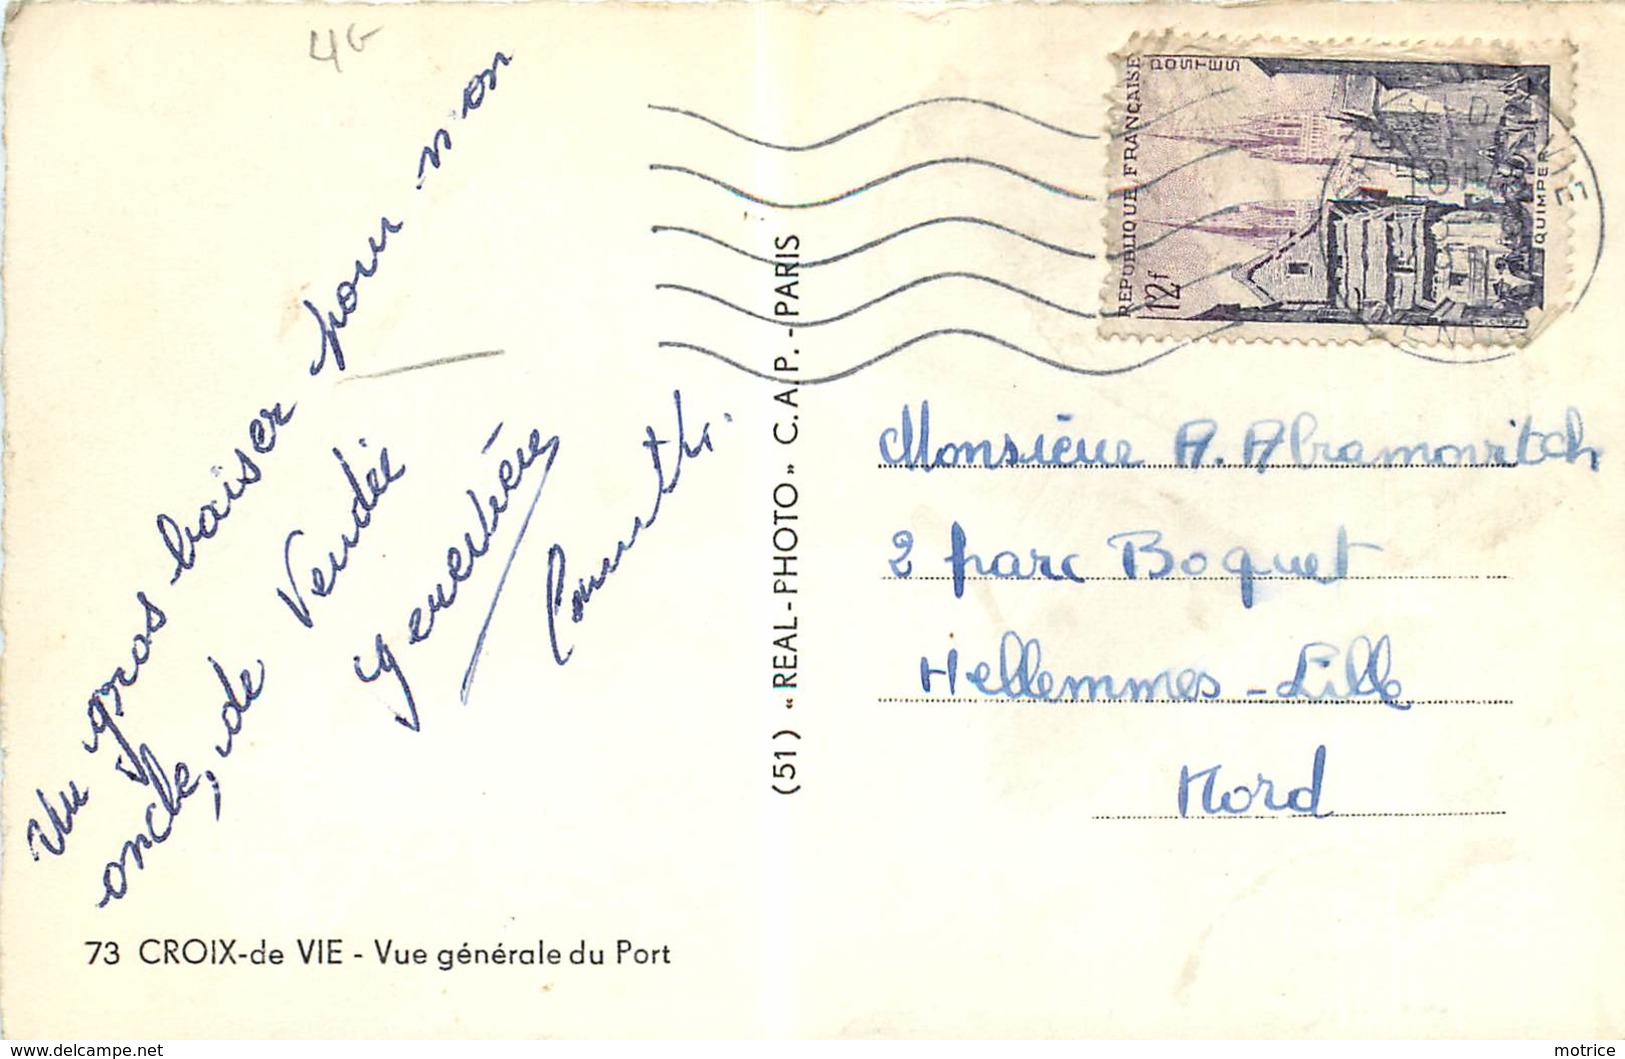 4G
Un gros baiser pour mon
oncle, de Vendée
Geneviève
73 CROIX-de VIE - Vue générale du Port
(51) « REAL-PHOTO » C.A.P. - PARIS
RÉPUBLIQUE FRANÇAISE
POSTES
12f
QUIMPER
Monsieur A. Abramovitch
2 parc Boquet
Hellemmes - Lille
Nord
motrice
https://www.delcampe.net